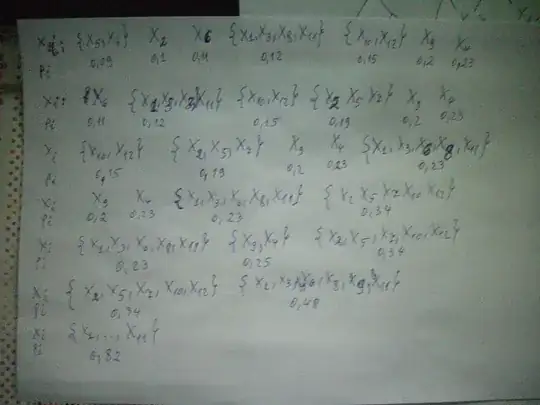 xi: {x5, x7} x2 x6 {x1, x3, x8, x11} {x10, x12} x9 x4
pi 0,09 0,1 0,11 0,12 0,15 0,2 0,23
xi: x6 {x1, x3, x8, x11} {x10, x12} {x2 x5 x7} x9 x4
pi 0,11 0,12 0,15 0,19 0,2 0,23
xi {x10, x12} {x2, x5, x7} x9 x4 {x1, x3, x6, x8, x11}
pi 0,15 0,19 0,2 0,23 0,23
xi x9 x4 {x1, x3, x6, x8, x11} {x2 x5 x7 x10 x12}
pi 0,2 0,23 0,23 0,34
xi {x1, x3, x6, x8, x11} {x9, x4} {x2, x5, x7, x10, x12}
pi 0,23 0,25 0,34
xi {x2, x5, x7, x10, x12} {x1, x3, x6, x8, x9, x11}
pi 0,34 0,48
xi {x1, ..., x11}
pi 0,82